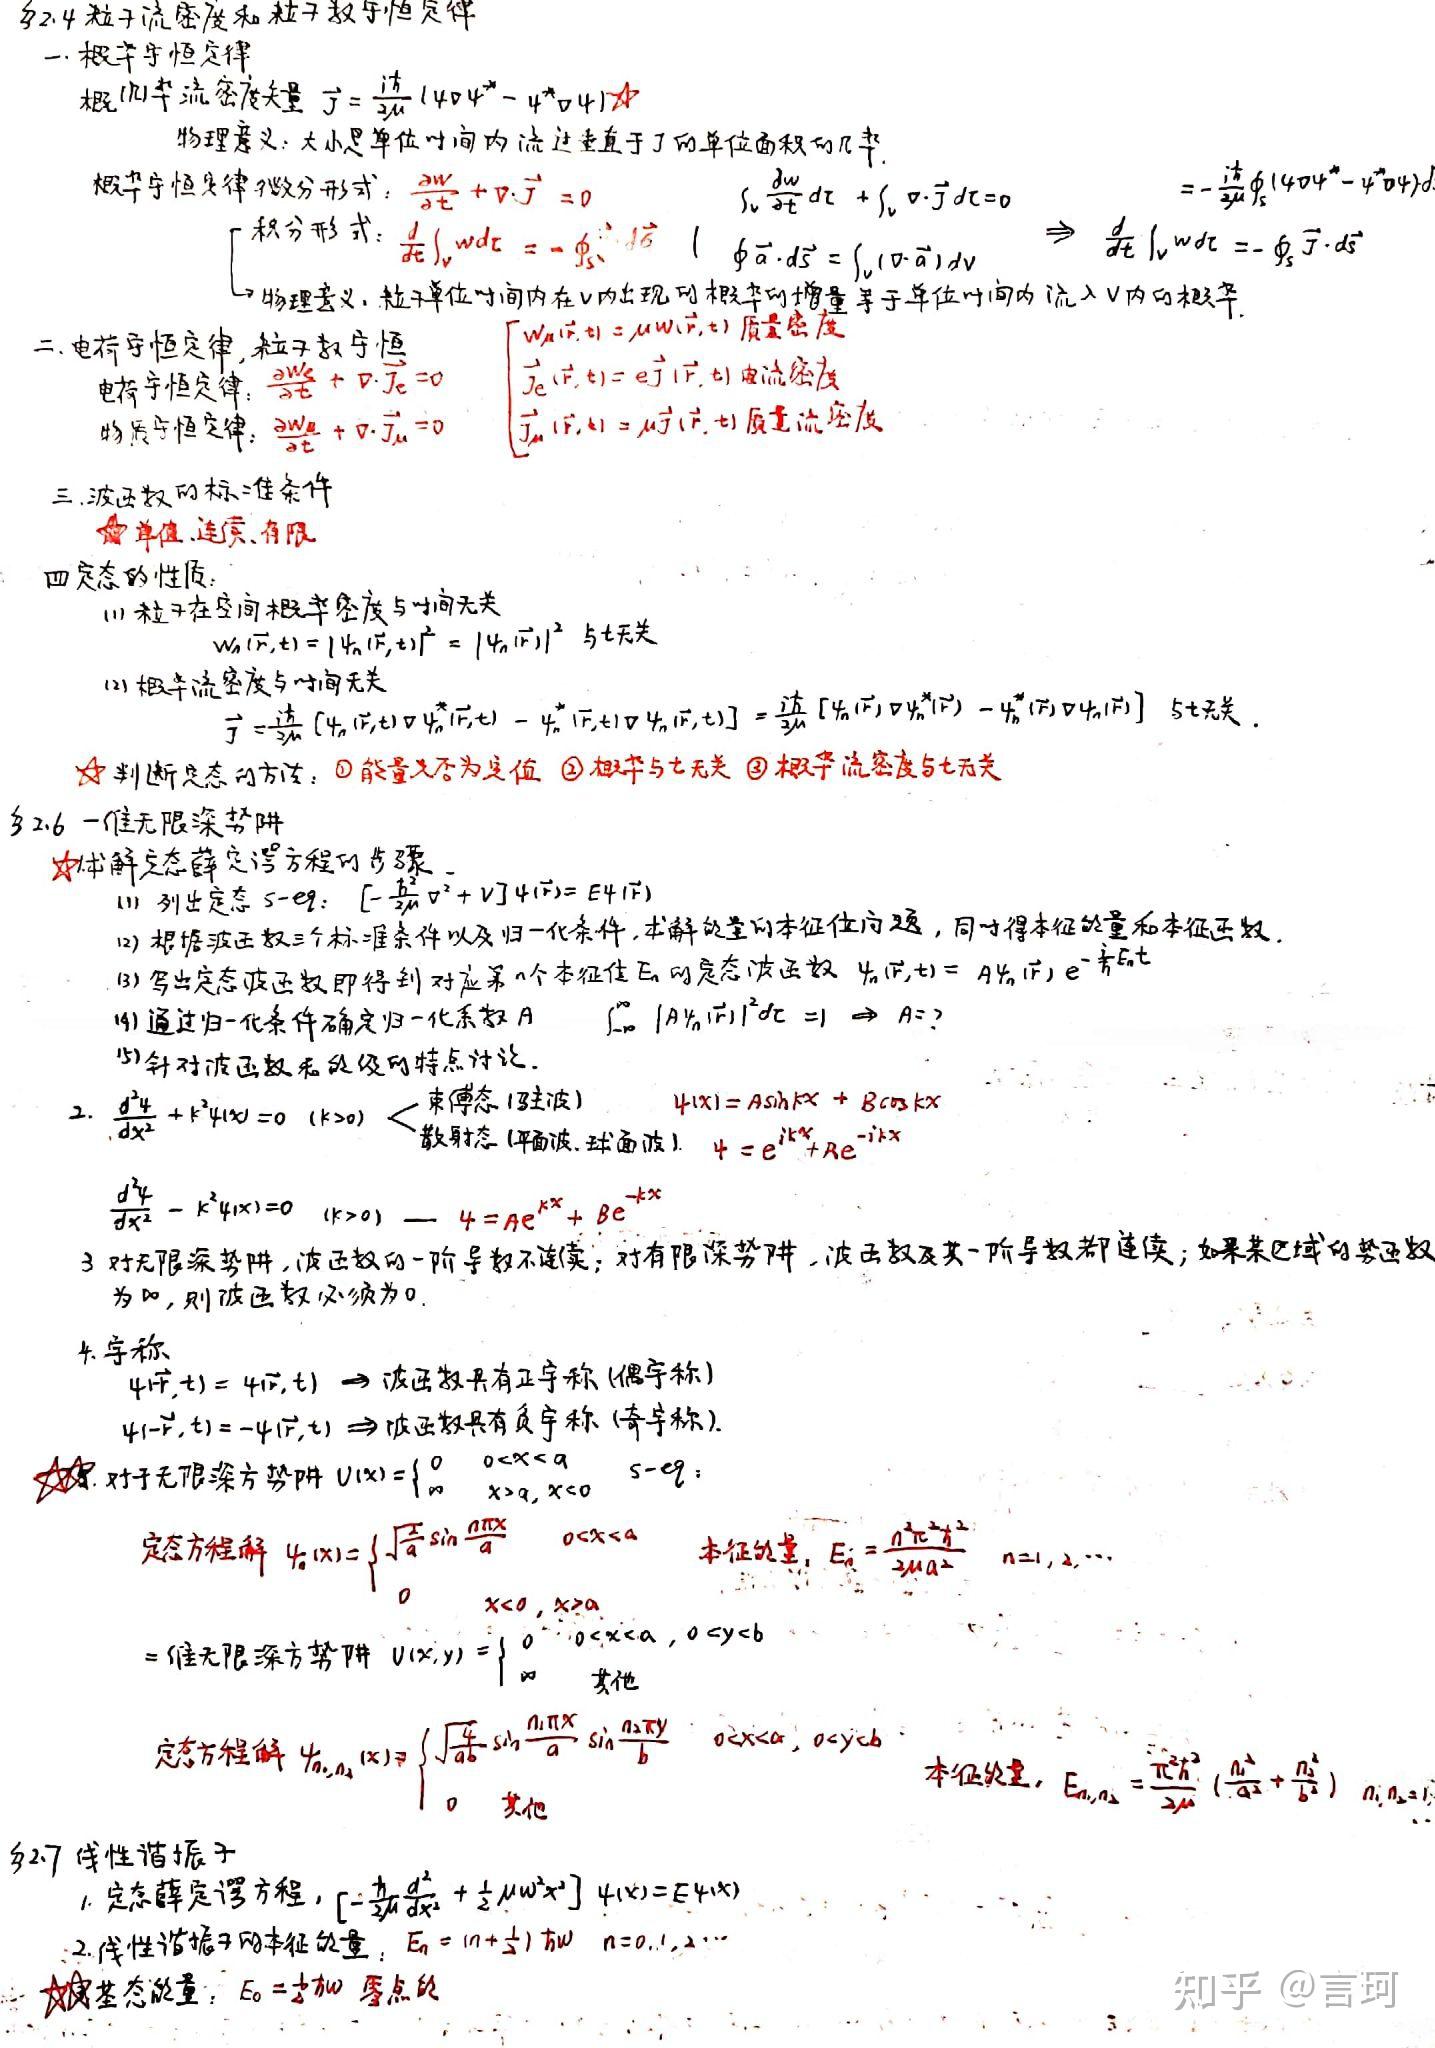 §2.4 粒子流密度和粒子数守恒定律
一. 概率守恒定律
概(几)率流密度矢量 J⃗ = iℏ/2μ (ψ∇ψ* - ψ*∇ψ) ☆
物理意义: 大小是单位时间内流过垂直于J的单位面积的几率.
概率守恒定律微分形式: ∂w/∂t + ∇·J⃗ = 0   ∫_v ∂w/∂t dτ + ∫_v ∇·J⃗ dτ = 0   = -iℏ/2μ ∮_s (ψ∇ψ* - ψ*∇ψ) d
积分形式: d/dt ∫_v wdτ = -∮_s dσ⃗   ∮ a⃗·ds⃗ = ∫_v (∇·a⃗) dv   ⇒ d/dt ∫_v wdτ = -∮_s J⃗·ds⃗
物理意义. 粒子单位时间内在V内出现的概率的增量等于单位时间内流入V内的概率.
二. 电荷守恒定律, 粒子数守恒   w_μ(r⃗,t) = μw(r⃗,t) 质量密度
电荷守恒定律: ∂w_e/∂t + ∇·J⃗_e = 0   J⃗_e(r⃗,t) = eJ⃗(r⃗,t) 电流密度
物质守恒定律: ∂w_μ/∂t + ∇·J⃗_μ = 0   J⃗_μ(r⃗,t) = μJ⃗(r⃗,t) 质量流密度
三. 波函数的标准条件
☆ 单值、连续、有限
四 定态的性质:
(1) 粒子在空间概率密度与时间无关
w_n(r⃗,t) = |ψ_n(r⃗,t)|² = |ψ_n(r⃗)|² 与t无关
(2) 概率流密度与时间无关
J⃗ = iℏ/2μ [ψ_n(r⃗,t)∇ψ_n*(r⃗,t) - ψ_n*(r⃗,t)∇ψ_n(r⃗,t)] = iℏ/2μ [ψ_n(r⃗)∇ψ_n*(r⃗) - ψ_n*(r⃗)∇ψ_n(r⃗)] 与t无关.
☆ 判断定态的方法: ① 能量是否为定值 ② 概率与t无关 ③ 概率流密度与t无关
§2.6 一维无限深势阱
☆ 求解定态薛定谔方程的步骤
(1) 列出定态 s-eq: [-ℏ²/2μ ∇² + V] ψ(r⃗) = Eψ(r⃗)
(2) 根据波函数三个标准条件以及归一化条件, 求解能量的本征值问题, 同时得本征能量和本征函数.
(3) 写出定态波函数即得到对应第n个本征值En的定态波函数 ψ_n(r⃗,t) = Aψ_n(r⃗) e^{-i/ℏ E_n t}
(4) 通过归一化条件确定归一化系数A   ∫_{-∞}^{∞} |Aψ_n(r⃗)|² dτ = 1 ⇒ A=?
(5) 针对波函数和能级的特点讨论.
2. d²ψ/dx² + k²ψ(x) = 0 (k>0)   束缚态 (驻波)   ψ(x) = Asinkx + Bcoskx
散射态 (平面波、球面波).   ψ = e^{ikx} + Re^{-ikx}
d²ψ/dx² - k²ψ(x) = 0 (k>0) — ψ = Ae^{kx} + Be^{-kx}
3 对无限深势阱, 波函数的一阶导数不连续; 对有限深势阱, 波函数及其一阶导数都连续; 如果某区域的势函数
为∞, 则波函数必须为0.
4. 宇称
ψ(-r⃗,t) = ψ(r⃗,t) ⇒ 波函数具有正宇称 (偶宇称)
ψ(-r⃗,t) = -ψ(r⃗,t) ⇒ 波函数具有负宇称 (奇宇称).
☆☆ 5. 对于无限深方势阱 U(x) = { 0 0<x<a   s-eq:
∞ x>a, x<0
定态方程解 ψ_n(x) = { √(2/a) sin nπx/a   0<x<a   本征能量, E_n = n²π²ℏ²/2μa²   n=1,2,…
0   x<0, x>a
二维无限深方势阱 U(x,y) = { 0 0<x<a, 0<y<b
∞ 其他
定态方程解 ψ_{n₁,n₂}(x) = { √(4/ab) sin n₁πx/a sin n₂πy/b   0<x<a, 0<y<b   本征能量, E_{n₁,n₂} = π²ℏ²/2μ (n₁²/a² + n₂²/b²)   n₁,n₂=1,
0 其他
§2.7 线性谐振子
1. 定态薛定谔方程, [-ℏ/2μ d²/dx² + ½μω²x²] ψ(x) = Eψ(x)
2. 线性谐振子的本征能量: E_n = (n+½)ℏω   n=0,1,2…
☆☆ 基态能量: E₀ = ½ℏω 零点能
知乎 @言珂